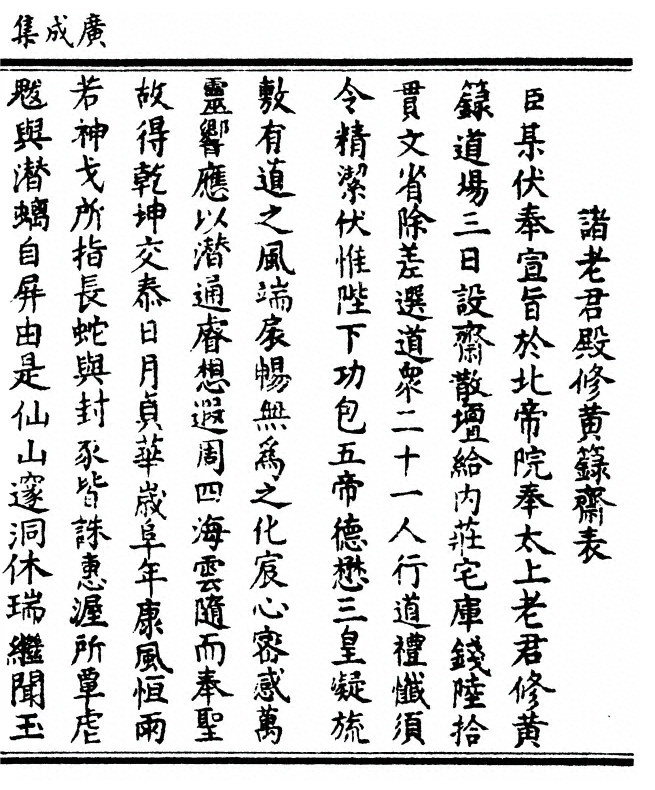 廣成集
諸老君殿修黃籙齋表
臣某伏奉宣旨於北帝院奉太上老君修黃
籙道場三日設齋散壇給内莊宅庫錢陸拾
貫文省除差選道衆二十一人行道禮懺須
令精潔伏惟陛下功包五帝德懋三皇凝旒
敷有道之風端扆暢無爲之化宸心密感萬
靈響應以潛通睿想遐周四海雲隨而奉聖
故得乾坤交泰日月貞華歲阜年康風恒雨
若神戈所指長蛇與封豕皆誅惠渥所覃虐
魃與潛螭自屏由是仙山邃洞休瑞繼聞玉